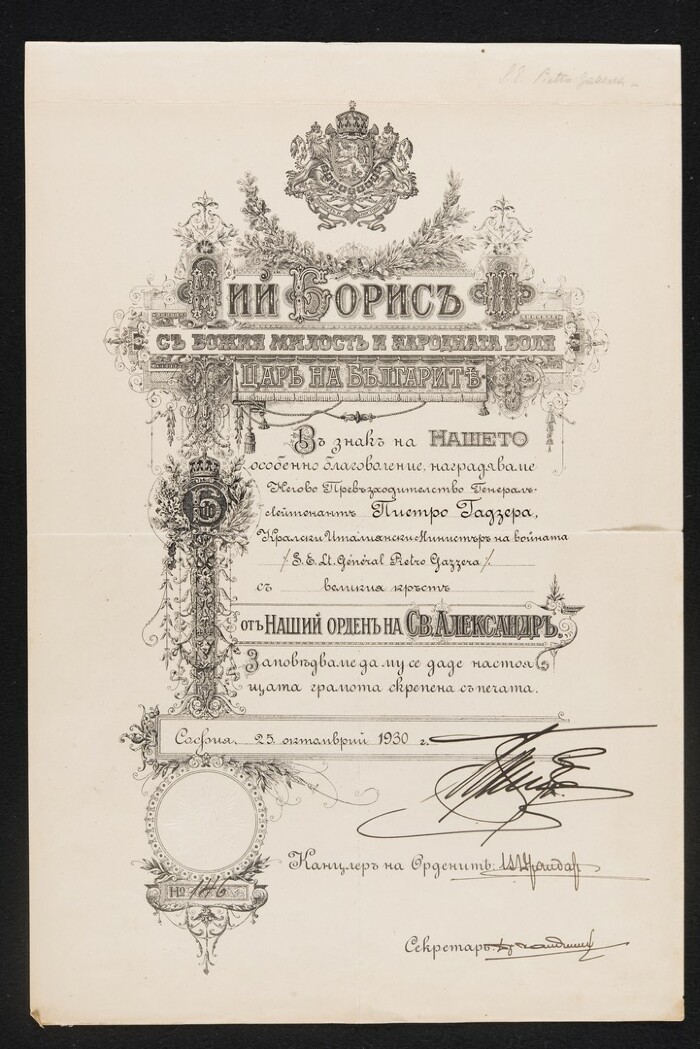 S. E. Pietro Gazzera
НИЙ БОРИСЪ III
СЪ БОЖИЯ МИЛОСТЬ И НАРОДНАТА ВОЛЯ
ЦАРЬ НА БЪЛГАРИТѢ
Въ знакъ на НАШЕТО
особенно благоволение, наградяваме
Негово Превъзходителство Генералъ-
Лейтенантъ Пиетро Гадзера,
Кралски Италиянски Министъръ на войната
/S.E. Lt. Général Pietro Gazzera/
съ великия кръстъ
отъ НАШИЙ ОРДЕНЪ НА СВ. АЛЕКСАНДРЪ.
Заповѣдваме да му се даде настоя
щата грамота скрепена съ печата.
София, 25 октомврий 1930 г.
Канцлеръ на Орденитѣ:
No 146
Секретаръ: